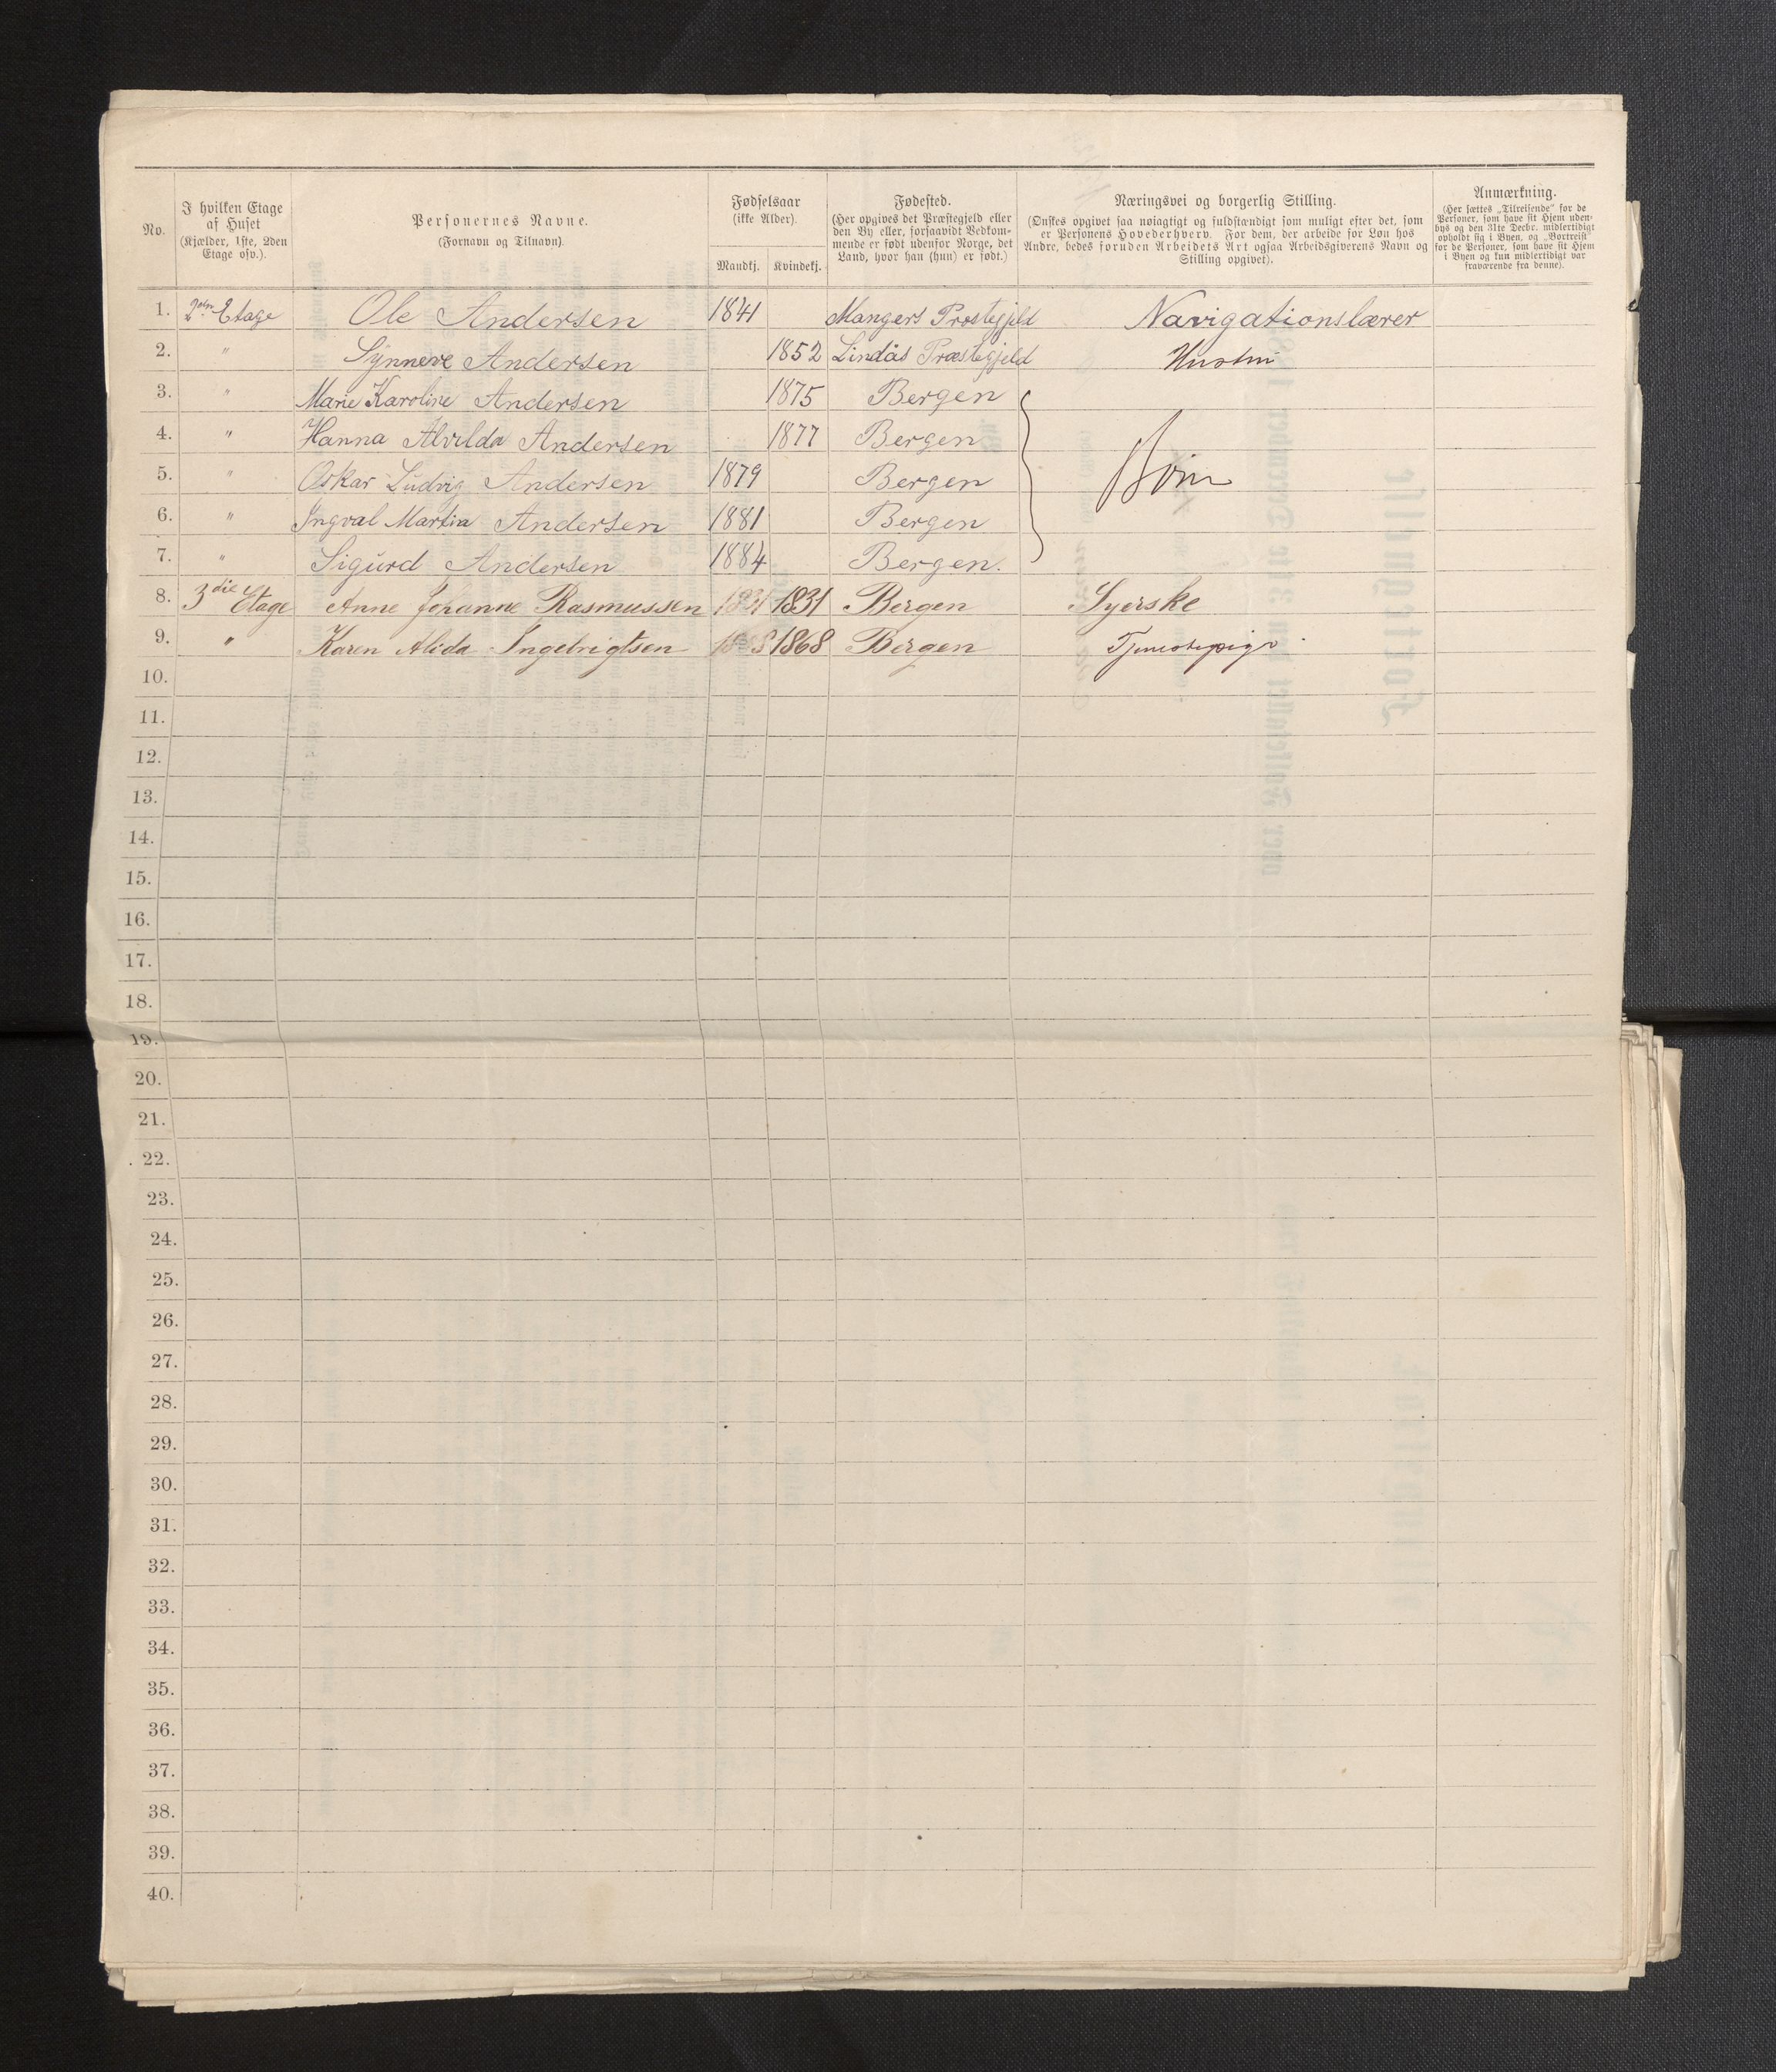 No.
I hvilken Etage af Huset
(Kjælder, 1ste, 2den Etage osv.).
Personernes Navne.
(Fornavn og Tilnavn).
Fødselsaar
(ikke Alder).
Mandkj. Kvindekj.
Fødested.
(Her opgives det Præstegjeld eller
den By eller, forsaavidt Vedkom-
mende er født udenfor Norge, det
Land, hvor han (hun) er født.)
Næringsvei og borgerlig Stilling.
(Ønskes opgivet saa nøiagtigt og fuldstændigt som muligt efter det, som
er Personens Hovederhverv. For dem, der arbeide for Løn hos
Andre, bedes foruden Arbeidets Art ogsaa Arbeidsgiverens Navn og
Stilling opgivet).
Anmærkning.
(Her sættes „Tilreisende“ for de
Personer, som have sit Hjem uden-
bys og den 31te Decbr. midlertidigt
opholdt sig i Byen, og „Bortreist“
for de Personer, som have sit Hjem
i Byen og kun midlertidigt var
fraværende fra denne).
1. 2den Etage Ole Andersen 1841 Mangers Prostegjeld Navigationslærer
2. " Synneve Andersen 1852 Lindås Præstegjeld Hustru
3. " Marie Karoline Andersen 1875 Bergen
4. " Hanna Alvilda Andersen 1877 Bergen
Børn
5. " Oskar Ludvig Andersen 1879 Bergen
6. " Ingval Martin Andersen 1881 Bergen
7. " Sigurd Andersen 1884 Bergen.
8. 3die Etage Anne Johanne Rasmussen 1831 1831 Bergen Syerske
9. " Karen Alida Ingebrigtsen 1868 Bergen Tjenestepige
10.
11.
12.
13.
14.
15.
16.
17.
18.
19.
20.
21.
22.
23.
24.
25.
26.
27.
28.
29.
30.
31.
32.
33.
34.
35.
36.
37.
38.
39.
40.